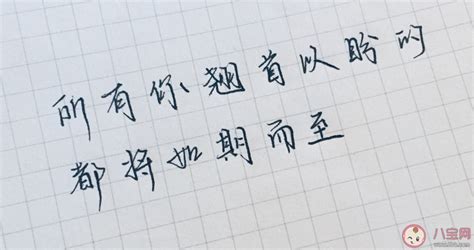 所有你翘首以盼的
都将如期而至
八宝网